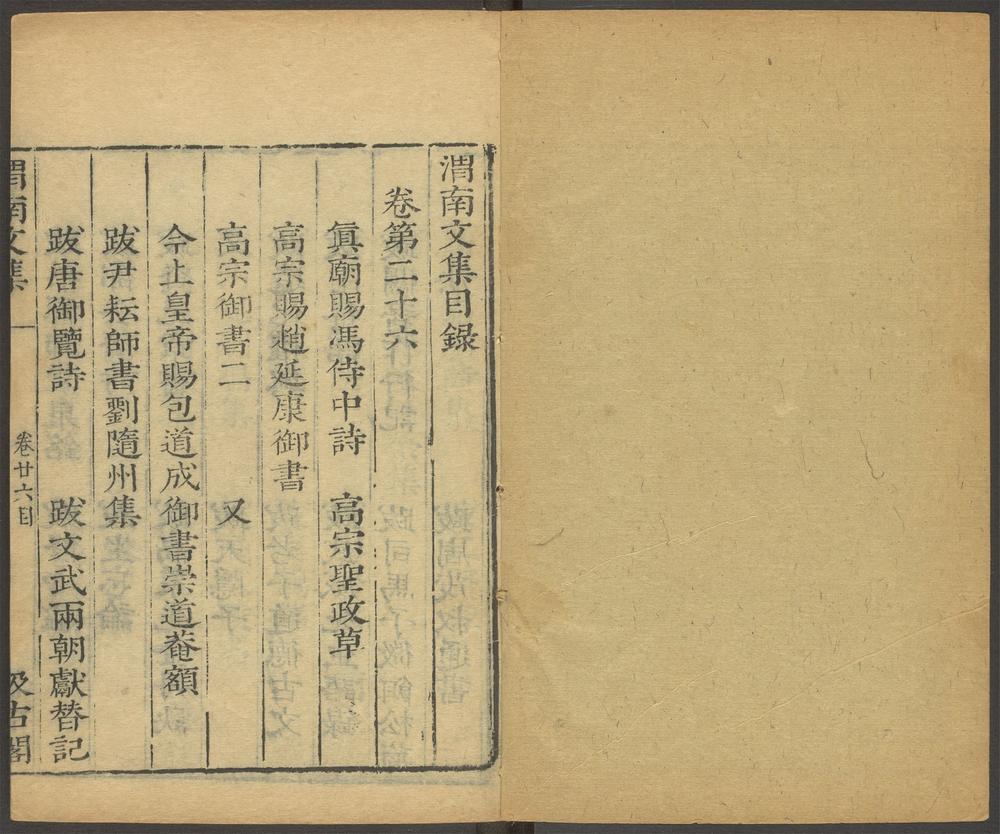 渭南文集目録
卷第二十六
眞廟賜馮侍中詩　高宗聖政草
高宗賜趙延康御書
高宗御書二　又
今上皇帝賜包道成御書崇道菴額
跋尹耘師書劉隨州集
跋唐御覽詩　跋文武兩朝獻替記
渭南文集　卷廿六目　汲古閣